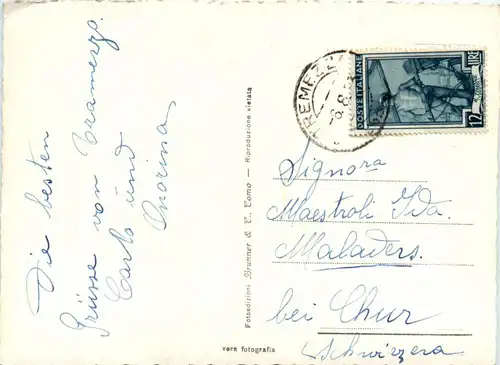 Die besten
Grüsse von Tramezzo.
Carlo und
Fotoedizioni Brunner & C. Como — Riproduzione vietata
TREMEZZ
POSTE ITALIANE
LIRE
12
Signora
Maestroli Ida.
Maladers.
bei Chur
Schwizzera
vera fotografia